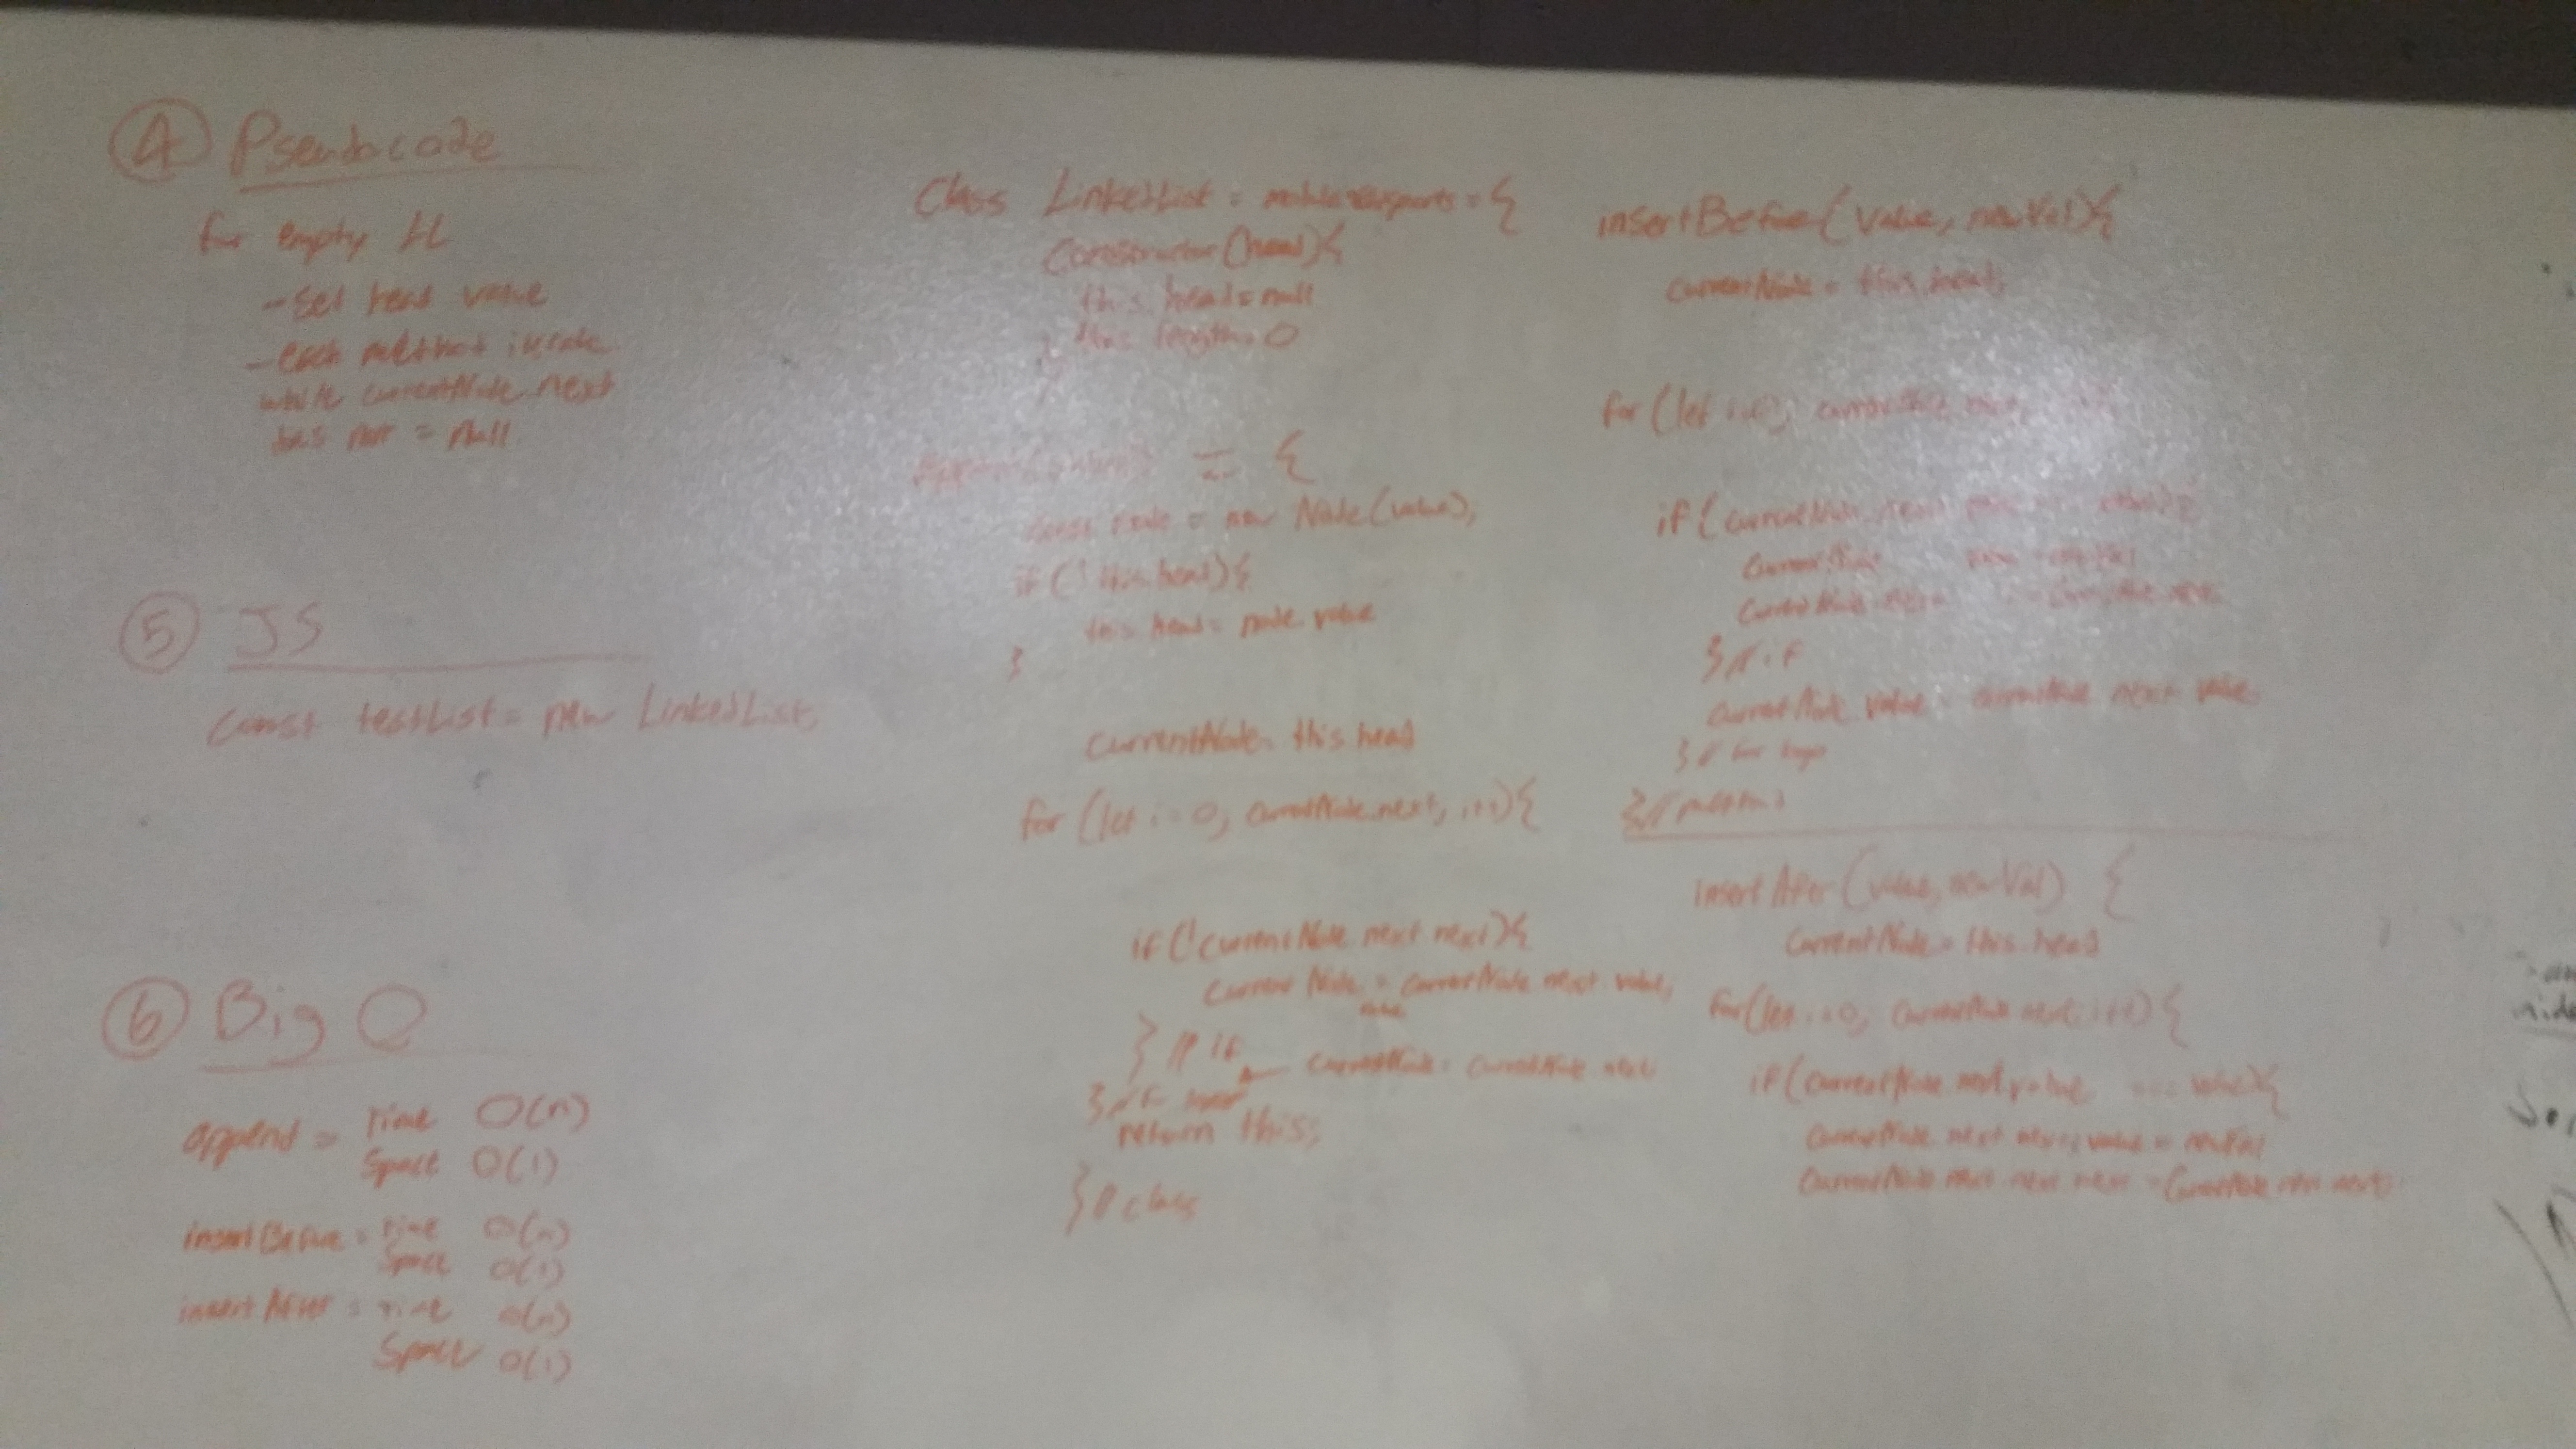 ④ Pseudocode
for empty LL
- Set head value
- each method
while currentNode.next
has not = Null
⑤ JS
const testList = new LinkedList;
⑥ Big O
append = Time O(n)
Space O(1)
insertBefore = Time O(n)
Space O(1)
insertAfter = Time O(n)
Space O(1)
Class LinkedList = module.exports = {
Constructor(head){
this.head = null
this.length = 0
}
= {
const node = new Node(value);
if (!this.head){
this.head = node.value
}
currentNode = this.head
for (let i = 0; currentNode.next; i++){
if (!currentNode.next.next){
currentNode = currentNode.next.value;
} // if
currentNode = currentNode.next
} //
return this;
} // class
insertBefore(value, newVal){
currentNode = this.head;
for (let i=0; currentNode.next;
if (currentNode.
currentNode
currentNode.next = currentNode.next
} // if
currentNode.value = currentNode.next.value
} // for loop
} // method
insertAfter(value, newVal) {
currentNode = this.head
for (let i=0; currentNode.next; i++) {
if (currentNode.next.value === value){
currentNode.next.next.value = newVal
currentNode.next.next.next = currentNode.next.next